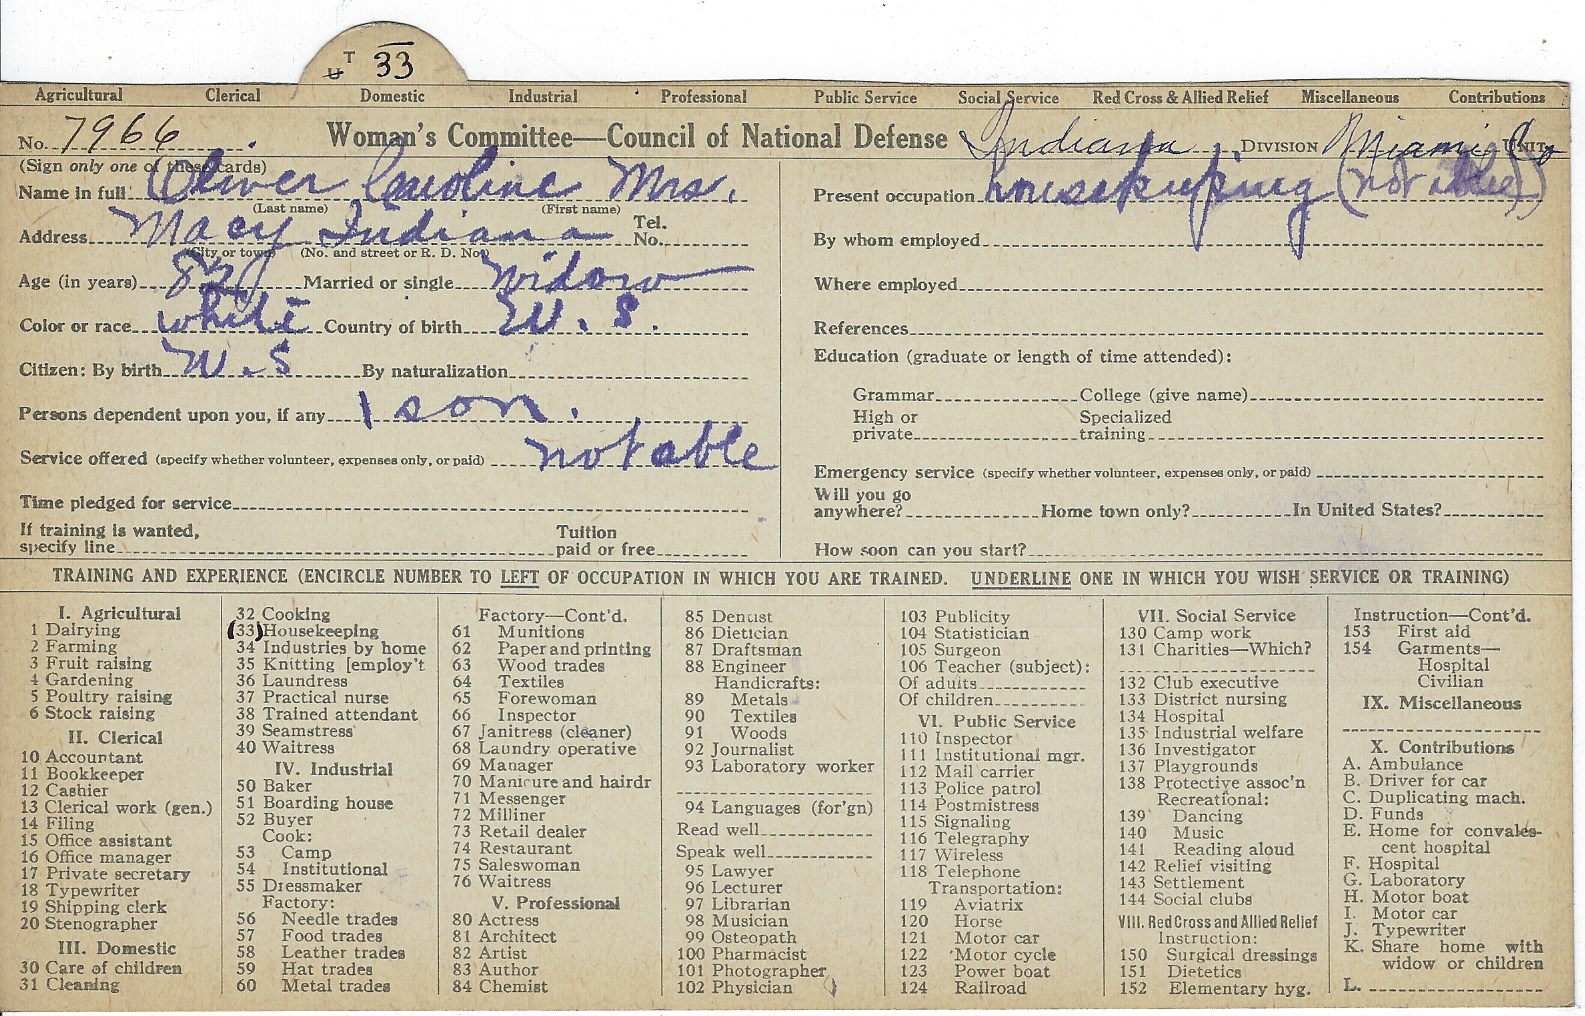 T
U 33
Agricultural Clerical Domestic Industrial Professional Public Service Social Service Red Cross & Allied Relief Miscellaneous Contributions
No. 7966 Woman's Committee—Council of National Defense Indiana DIVISION Miami Co UNIT
(Sign only one of these cards)
Name in full Oliver Caroline Mrs.
(Last name) (First name)
Address Macy Indiana Tel. No.
(City or town) (No. and street or R. D. No.)
Age (in years) 82 Married or single Widow
Color or race white Country of birth U. S.
Citizen: By birth U. S By naturalization
Persons dependent upon you, if any 1 son.
Service offered (specify whether volunteer, expenses only, or paid) not able
Time pledged for service
If training is wanted, specify line Tuition paid or free
Present occupation housekeeping (not able)
By whom employed
Where employed
References
Education (graduate or length of time attended):
Grammar College (give name)
High or private Specialized training
Emergency service (specify whether volunteer, expenses only, or paid)
Will you go anywhere? Home town only? In United States?
How soon can you start?
TRAINING AND EXPERIENCE (ENCIRCLE NUMBER TO LEFT OF OCCUPATION IN WHICH YOU ARE TRAINED. UNDERLINE ONE IN WHICH YOU WISH SERVICE OR TRAINING)
I. Agricultural
1 Dairying
2 Farming
3 Fruit raising
4 Gardening
5 Poultry raising
6 Stock raising
II. Clerical
10 Accountant
11 Bookkeeper
12 Cashier
13 Clerical work (gen.)
14 Filing
15 Office assistant
16 Office manager
17 Private secretary
18 Typewriter
19 Shipping clerk
20 Stenographer
III. Domestic
30 Care of children
31 Cleaning
32 Cooking
(33) Housekeeping
34 Industries by home
35 Knitting [employ't
36 Laundress
37 Practical nurse
38 Trained attendant
39 Seamstress
40 Waitress
IV. Industrial
50 Baker
51 Boarding house
52 Buyer
Cook:
53 Camp
54 Institutional
55 Dressmaker
Factory:
56 Needle trades
57 Food trades
58 Leather trades
59 Hat trades
60 Metal trades
Factory—Cont'd.
61 Munitions
62 Paper and printing
63 Wood trades
64 Textiles
65 Forewoman
66 Inspector
67 Janitress (cleaner)
68 Laundry operative
69 Manager
70 Manicure and hairdr
71 Messenger
72 Milliner
73 Retail dealer
74 Restaurant
75 Saleswoman
76 Waitress
V. Professional
80 Actress
81 Architect
82 Artist
83 Author
84 Chemist
85 Dentist
86 Dietician
87 Draftsman
88 Engineer
Handicrafts:
89 Metals
90 Textiles
91 Woods
92 Journalist
93 Laboratory worker
94 Languages (for'gn)
Read well
Speak well
95 Lawyer
96 Lecturer
97 Librarian
98 Musician
99 Osteopath
100 Pharmacist
101 Photographer
102 Physician
103 Publicity
104 Statistician
105 Surgeon
106 Teacher (subject):
Of adults
Of children
VI. Public Service
110 Inspector
111 Institutional mgr.
112 Mail carrier
113 Police patrol
114 Postmistress
115 Signaling
116 Telegraphy
117 Wireless
118 Telephone
Transportation:
119 Aviatrix
120 Horse
121 Motor car
122 Motor cycle
123 Power boat
124 Railroad
VII. Social Service
130 Camp work
131 Charities—Which?
132 Club executive
133 District nursing
134 Hospital
135 Industrial welfare
136 Investigator
137 Playgrounds
138 Protective assoc'n
Recreational:
139 Dancing
140 Music
141 Reading aloud
142 Relief visiting
143 Settlement
144 Social clubs
VIII. Red Cross and Allied Relief
Instruction:
150 Surgical dressings
151 Dietetics
152 Elementary hyg.
Instruction—Cont'd.
153 First aid
154 Garments—
Hospital
Civilian
IX. Miscellaneous
X. Contributions
A. Ambulance
B. Driver for car
C. Duplicating mach.
D. Funds
E. Home for convales-
cent hospital
F. Hospital
G. Laboratory
H. Motor boat
I. Motor car
J. Typewriter
K. Share home with
widow or children
L.